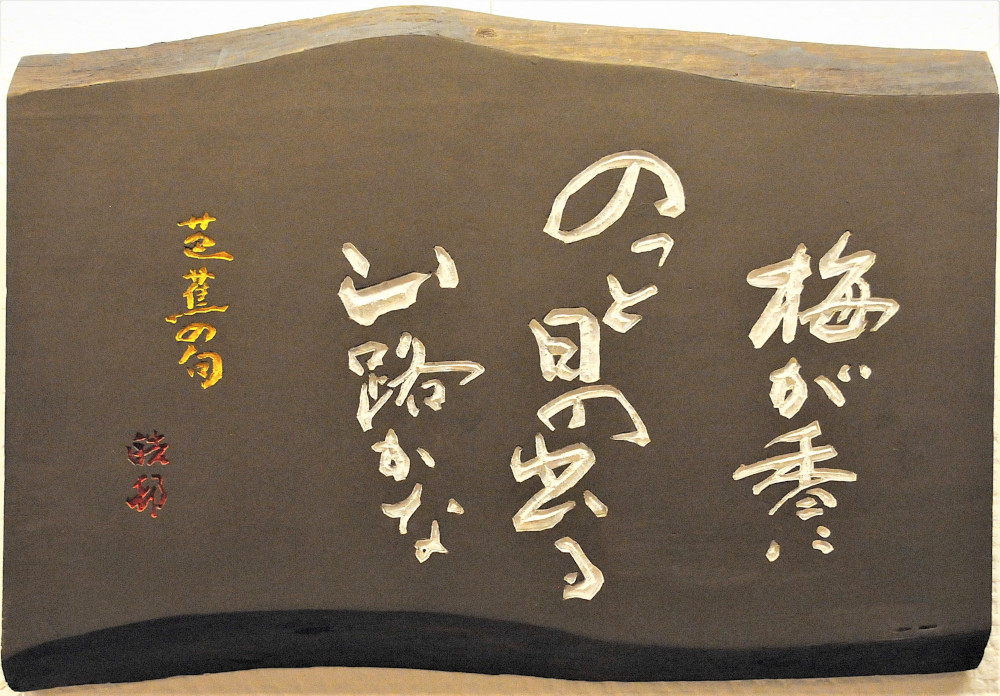 梅が香に
のっと日の出る
山路かな
芭蕉の句